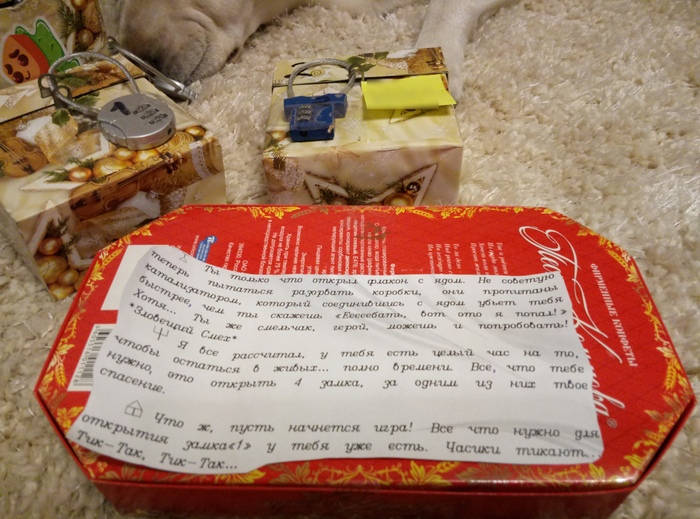 1
Ты только что открыл флакон с ядом. Не советую
теперь пытаться разорвать коробки, они пропитаны
катализатором, который соединившись с ядом убьет тебя
быстрее, чем ты скажешь «Ееесебать, вот это я попал!»
Хотя... Ты же смельчак, герой, можешь и попробовать!
*Зловещий Смех*
Я все рассчитал, у тебя есть целый час на то,
чтобы остаться в живых... полно времени. Все, что тебе
нужно, это открыть 4 замка, за одним из них твое
спасение.
Что ж, пусть начнется игра! Все что нужно для
открытия замка«1» у тебя уже есть. Часики тикают...
Тик-Так, Тик-Так...
ФИРМЕННЫЕ КОНФЕТЫ